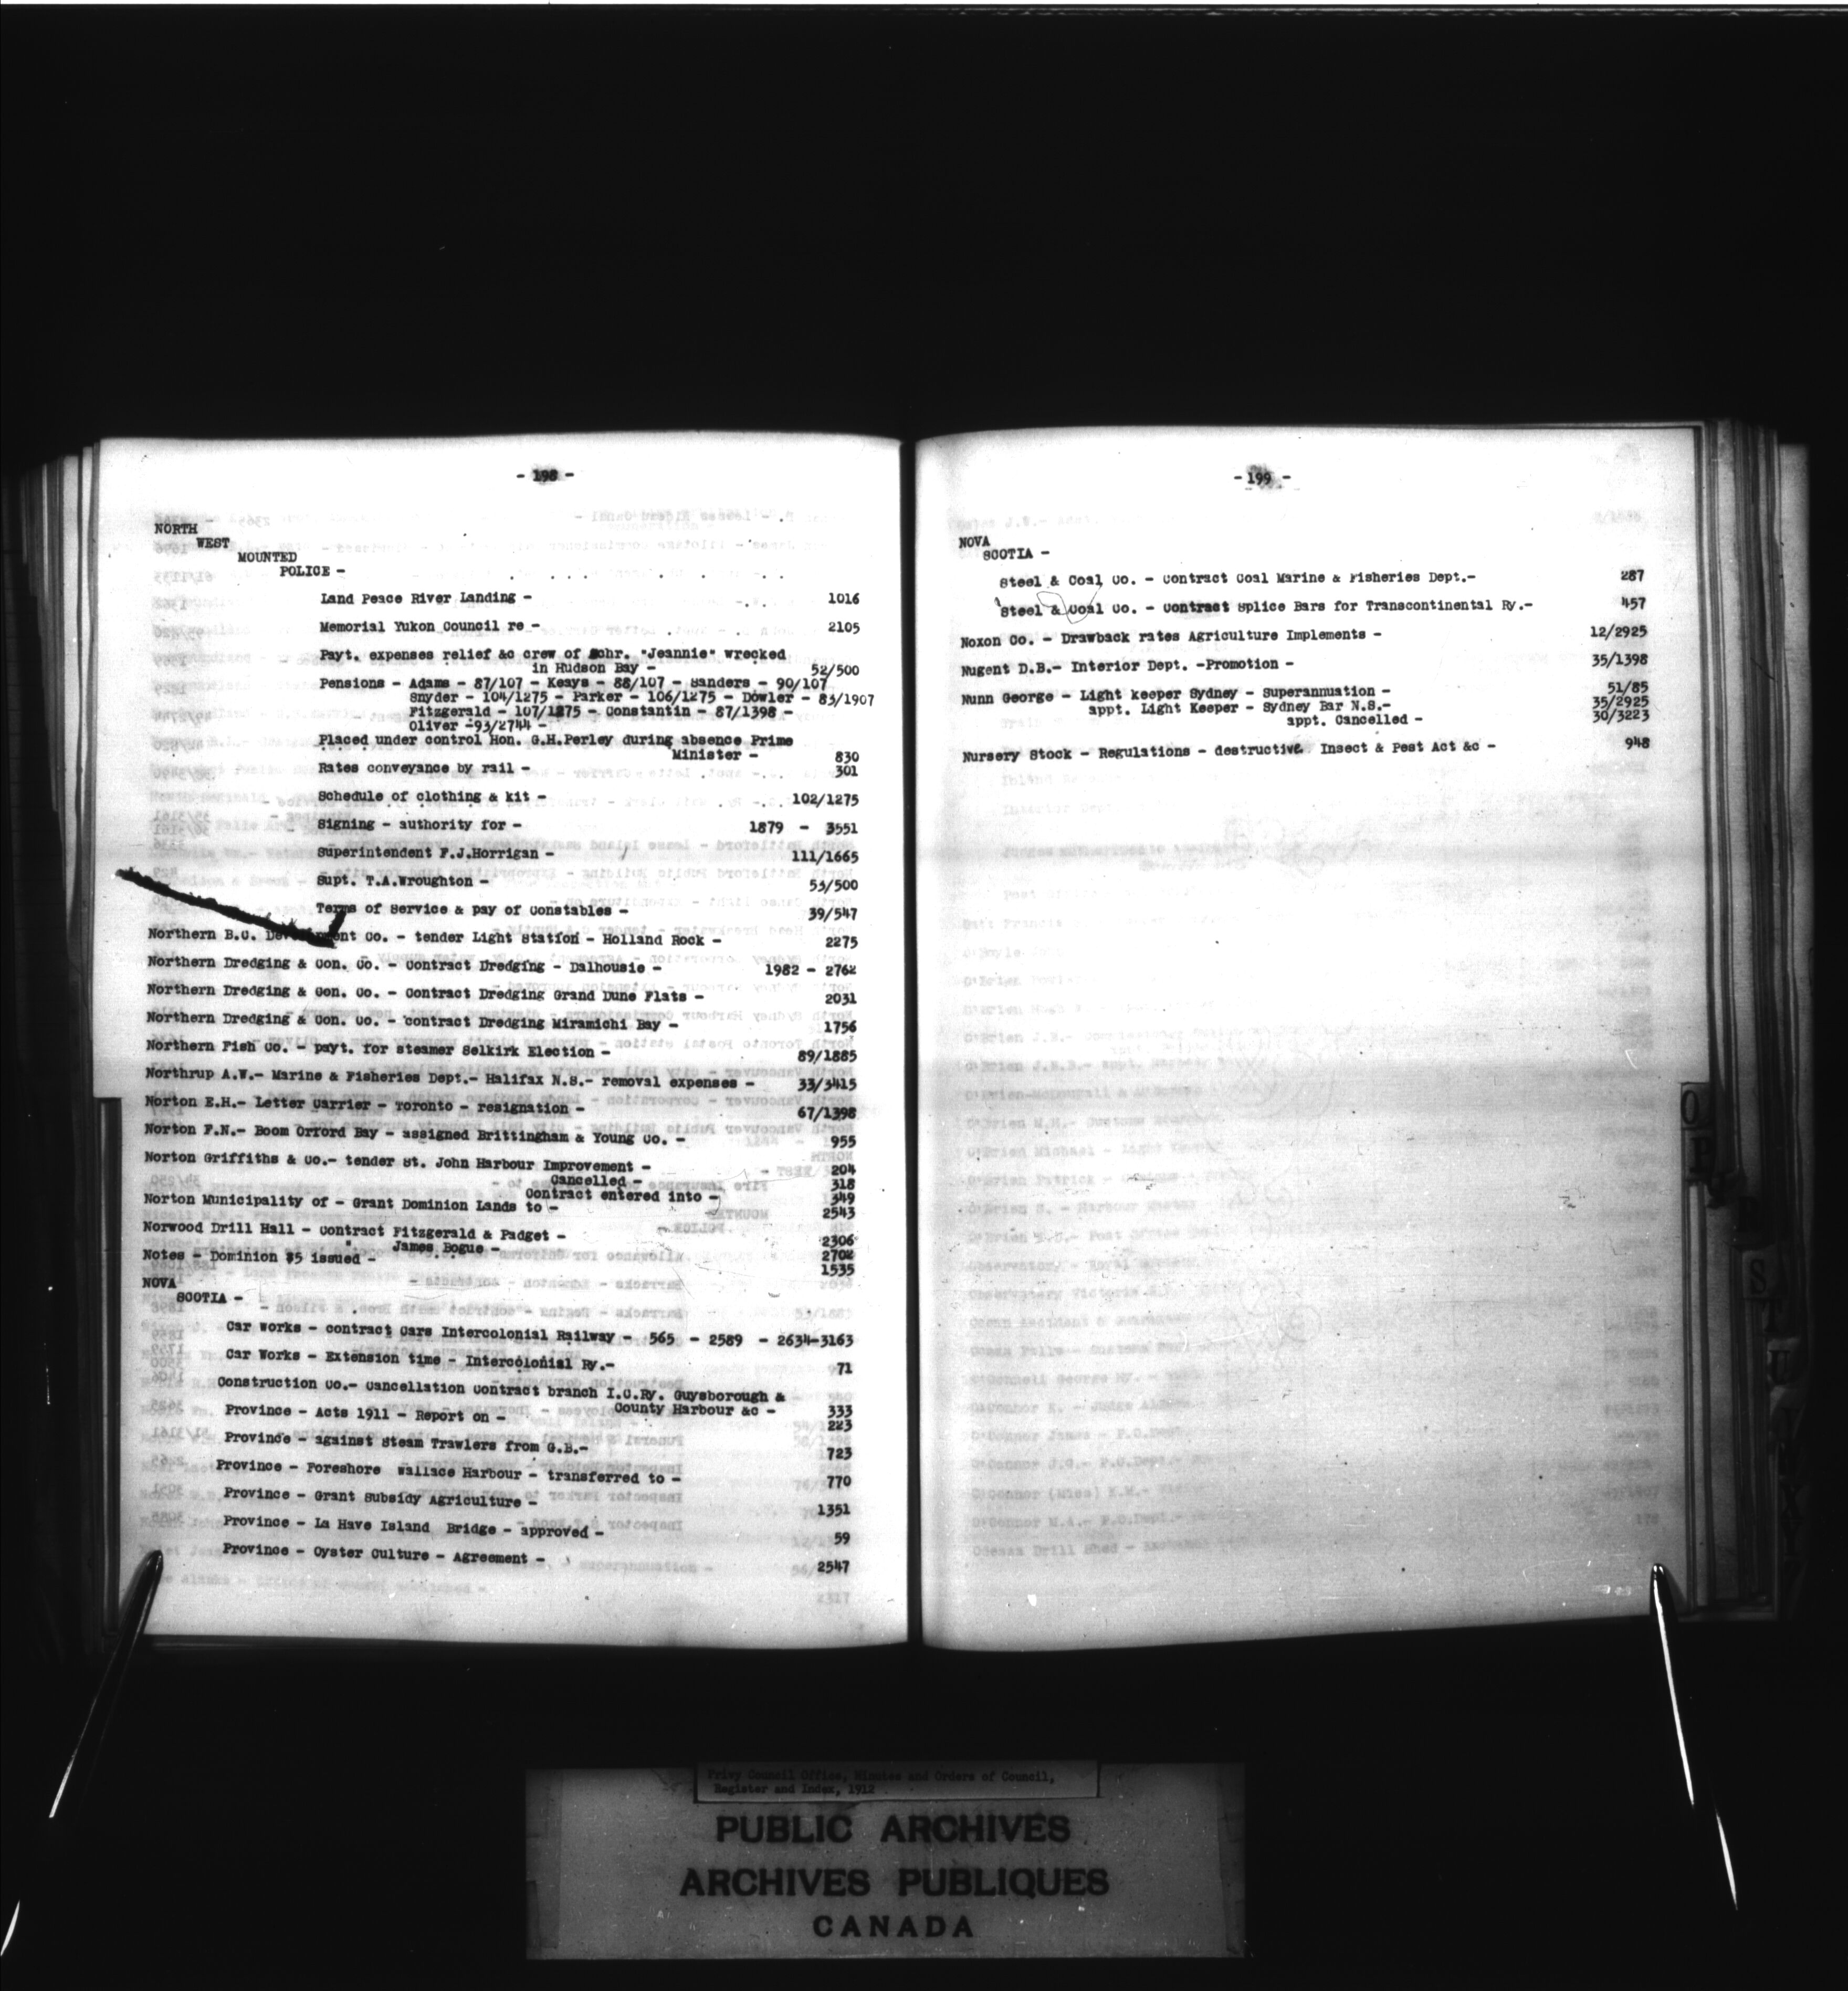 - 198 -
NORTH
WEST
MOUNTED
POLICE -
Land Peace River Landing - 1016
Memorial Yukon Council re - 2105
Payt. expenses relief &c crew of Schr. "Jeannie" wrecked
in Hudson Bay - 52/500
Pensions - Adams - 87/107 - Keays - 88/107 - Sanders - 90/107
Snyder - 104/1275 - Parker - 106/1275 - Dowler - 83/1907
Fitzgerald - 107/1275 - Constantin - 87/1398 -
Oliver -93/2744 -
Placed under control Hon. G.H.Perley during absence Prime
Minister - 830
Rates conveyance by rail - 301
Schedule of clothing & kit - 102/1275
Signing - authority for - 1879 - 3551
Superintendent F.J.Horrigan - 111/1665
Supt. T.A.Wroughton - 53/500
Terms of Service & pay of Constables - 39/547
Northern B.C. Co. - tender Light Station - Holland Rock - 2275
Northern Dredging & Con. Co. - Contract Dredging - Dalhousie - 1982 - 2762
Northern Dredging & Con. Co. - Contract Dredging Grand Dune Flats - 2031
Northern Dredging & Con. Co. - contract Dredging Miramichi Bay - 1756
Northern Fish Co. - payt. for steamer Selkirk Election - 89/1885
Northrup A.W.- Marine & Fisheries Dept.- Halifax N.S.- removal expenses - 33/3415
Norton E.H.- Letter Carrier - Toronto - resignation - 67/1398
Norton F.N.- Boom Orford Bay - assigned Brittingham & Young Co. - 955
Norton Griffiths & Co.- tender St. John Harbour Improvement - 204
Cancelled - 318
Contract entered into - 349
Norton Municipality of - Grant Dominion Lands to - 2543
Norwood Drill Hall - contract Fitzgerald & Padget - 2306
" James Bogue - 2702
Notes - Dominion $5 issued - 1535
NOVA
SCOTIA -
Car Works - contract Cars Intercolonial Railway - 565 - 2589 - 2634-3163
Car Works - Extension time - Intercolonial Ry.- 71
Construction Co.- Cancellation Contract branch I.C.Ry. Guysborough &
County Harbour &c - 333
Province - Acts 1911 - Report on - 223
Province - against Steam Trawlers from G.B.- 723
Province - Foreshore Wallace Harbour - transferred to - 770
Province - Grant Subsidy Agriculture - 1351
Province - La Have Island Bridge - approved - 59
Province - Oyster Culture - Agreement - 2547
- 199 -
NOVA
SCOTIA -
Steel & Coal Co. - Contract Coal Marine & Fisheries Dept.- 287
Steel & Coal Co. - Contract Splice Bars for Transcontinental Ry.- 457
Noxon Co. - Drawback rates Agriculture Implements - 12/2925
Nugent D.B.- Interior Dept. -Promotion - 35/1398
Nunn George - Light keeper Sydney - Superannuation - 51/85
appt. Light Keeper - Sydney Bar N.S.- 35/2925
appt. Cancelled - 30/3223
Nursery Stock - Regulations - destructive Insect & Pest Act &c - 948
O
P
S
T
U
Privy Council Office, Minutes and Orders of Council,
Register and Index, 1912
PUBLIC ARCHIVES
ARCHIVES PUBLIQUES
CANADA